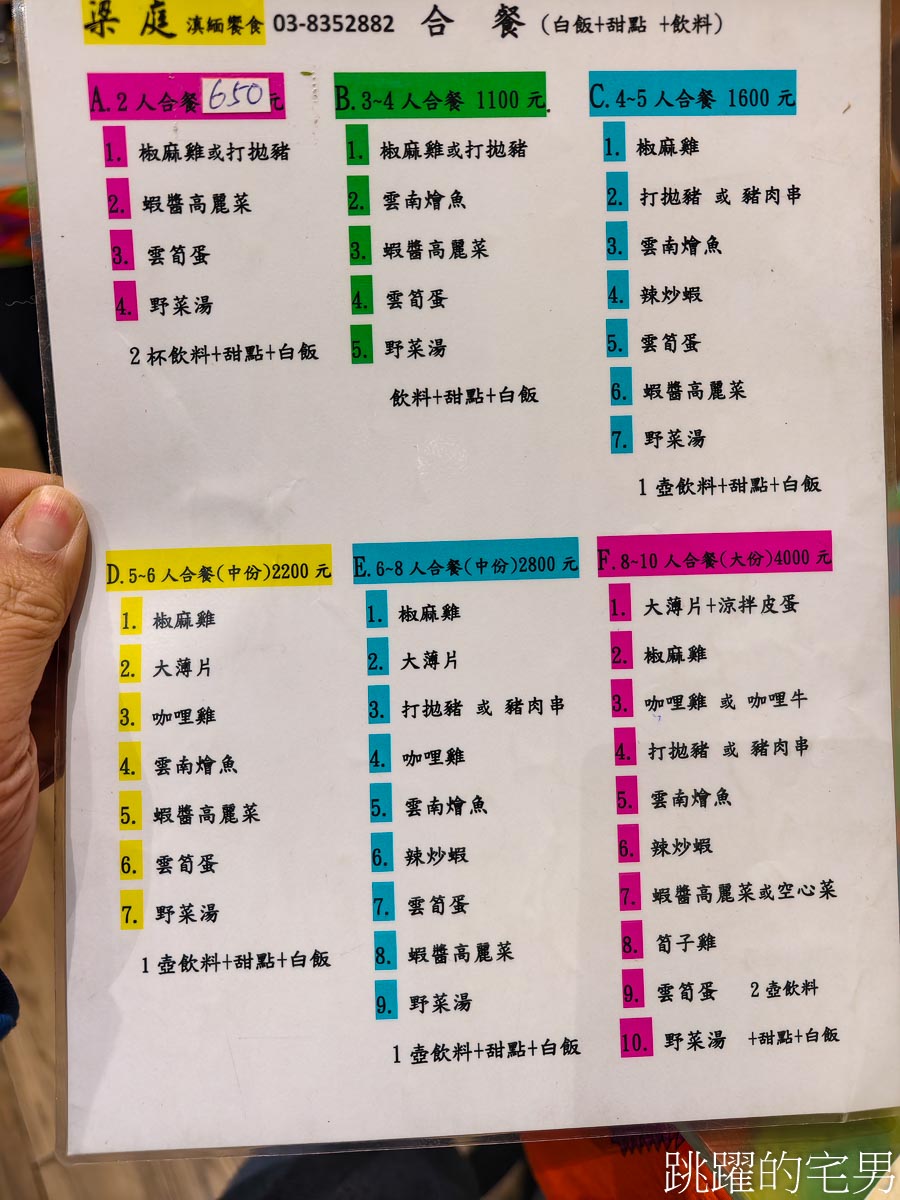 梁庭 滇緬饗食 03-8352882 合 餐 (白飯+甜點 +飲料)
A. 2 人合餐 650 元
1. 椒麻雞或打拋豬
2. 蝦醬高麗菜
3. 雲筍蛋
4. 野菜湯
2 杯飲料+甜點+白飯
B. 3~4 人合餐 1100 元.
1. 椒麻雞或打拋豬
2. 雲南燴魚
3. 蝦醬高麗菜
4. 雲筍蛋
5. 野菜湯
飲料+甜點+白飯
C. 4~5 人合餐 1600 元
1. 椒麻雞
2. 打拋豬 或 豬肉串
3. 雲南燴魚
4. 辣炒蝦
5. 雲筍蛋
6. 蝦醬高麗菜
7. 野菜湯
1 壺飲料+甜點+白飯
D. 5~6 人合餐(中份)2200 元
1. 椒麻雞
2. 大薄片
3. 咖哩雞
4. 雲南燴魚
5. 蝦醬高麗菜
6. 雲筍蛋
7. 野菜湯
1 壺飲料+甜點+白飯
E. 6~8 人合餐(中份)2800 元
1. 椒麻雞
2. 大薄片
3. 打拋豬 或 豬肉串
4. 咖哩雞
5. 雲南燴魚
6. 辣炒蝦
7. 雲筍蛋
8. 蝦醬高麗菜
9. 野菜湯
1 壺飲料+甜點+白飯
F. 8~10 人合餐(大份)4000 元
1. 大薄片+涼拌皮蛋
2. 椒麻雞
3. 咖哩雞 或 咖哩牛
4. 打拋豬 或 豬肉串
5. 雲南燴魚
6. 辣炒蝦
7. 蝦醬高麗菜或空心菜
8. 筍子雞
9. 雲筍蛋 2 壺飲料
10. 野菜湯 +甜點+白飯
跳躍的宅男